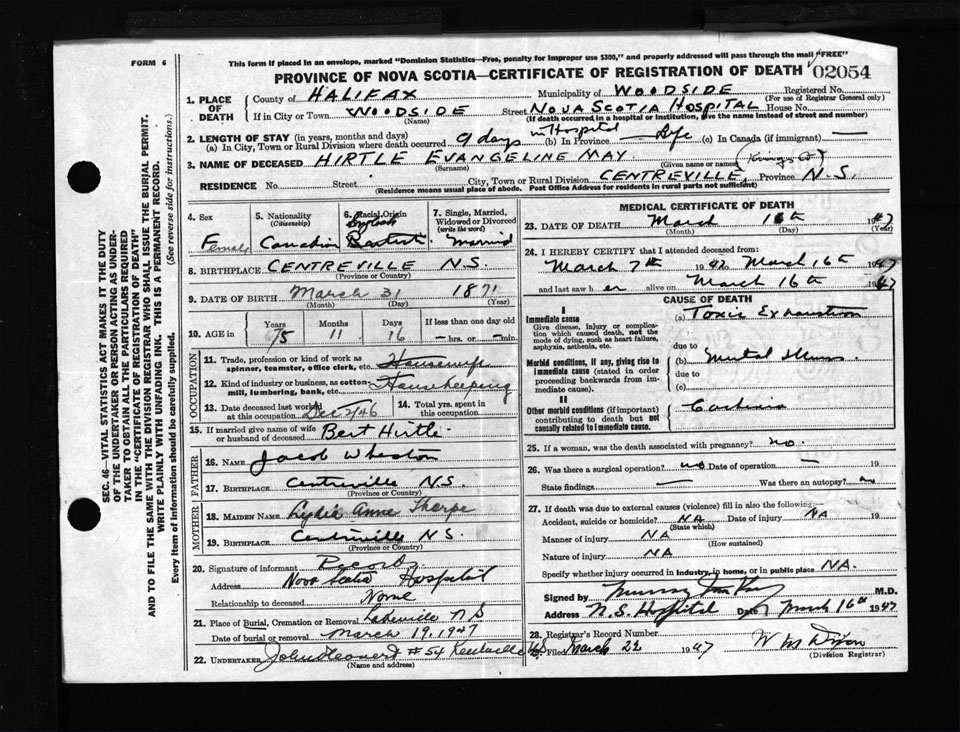 FORM 6
This form if placed in an envelope, marked "Dominion Statistics—Free, penalty for improper use $300," and properly addressed will pass through the mail "FREE"
PROVINCE OF NOVA SCOTIA—CERTIFICATE OF REGISTRATION OF DEATH 02054
SEC. 46—VITAL STATISTICS ACT MAKES IT THE DUTY
OF THE UNDERTAKER OR PERSON ACTING AS UNDER-
TAKER TO OBTAIN ALL THE PARTICULARS REQUIRED
IN THE "CERTIFICATE OF REGISTRATION OF DEATH"
AND TO FILE THE SAME WITH THE DIVISION REGISTRAR WHO SHALL ISSUE THE BURIAL PERMIT.
WRITE PLAINLY WITH UNFADING INK. THIS IS A PERMANENT RECORD.
Every item of information should be carefully supplied. (See reverse side for instructions.)
1. PLACE OF DEATH
County of HALIFAX Municipality of WOODSIDE Registered No.
(For use of Registrar General only)
If in City or Town WOODSIDE Street NOVA SCOTIA HOSPITAL House No.
(Name) (If death occurred in a hospital or institution, give the name instead of street and number)
2. LENGTH OF STAY (in years, months and days)
(a) In City, Town or Rural Division where death occurred 9 days in Hospital (b) In Province Life (c) In Canada (if immigrant) —
3. NAME OF DECEASED HIRTLE EVANGELINE MAY
(Surname) (Given name or names) (Kings Co)
RESIDENCE No. Street City, Town or Rural Division CENTREVILLE, Province N.S.
(Residence means usual place of abode. Post Office Address for residents in rural parts not sufficient)
4. Sex Female
5. Nationality (Citizenship) Canadian
6. Racial Origin English Baptist
7. Single, Married, Widowed or Divorced (write the word) Married
8. BIRTHPLACE CENTREVILLE N.S.
(Province or Country)
9. DATE OF BIRTH March 31 1871
(Month) (Day) (Year)
10. AGE in Years Months Days If less than one day old
75 11 16 — hrs. or — min.
OCCUPATION
11. Trade, profession or kind of work as spinner, teamster, office clerk, etc. Housewife
12. Kind of industry or business, as cotton mill, lumbering, bank, etc. Housekeeping
13. Date deceased last worked at this occupation Dec 2/46
14. Total yrs. spent in this occupation
15. If married give name of wife or husband of deceased Bert Hirtle
FATHER
16. NAME Jacob Wheaton
17. BIRTHPLACE Centreville N.S.
(Province or Country)
MOTHER
18. MAIDEN NAME Lydia Anne Thorpe
19. BIRTHPLACE Centreville N.S.
(Province or Country)
20. Signature of informant Records
Address Nova Scotia Hospital
Relationship to deceased None
21. Place of Burial, Cremation or Removal Lakeville N S
Date of burial or removal March 19, 1947
22. UNDERTAKER #54 Kentville NS
(Name and address)
MEDICAL CERTIFICATE OF DEATH
23. DATE OF DEATH March 16th 1947
(Month) (Day) (Year)
24. I HEREBY CERTIFY that I attended deceased from:
March 7th 1947 to March 16th 1947
and last saw her alive on March 16th 1947
CAUSE OF DEATH
I
Immediate cause (a) Toxic Exhaustion
Give disease, injury or complication which caused death, not the mode of dying, such as heart failure, asphyxia, asthenia, etc.
due to
Morbid conditions, if any, giving rise to immediate cause (stated in order proceeding backwards from immediate cause). (b) Mental Illness
due to
(c)
II
Other morbid conditions (if important) contributing to death but not causally related to immediate cause.
25. If a woman, was the death associated with pregnancy? no.
26. Was there a surgical operation? no Date of operation — 19
State findings — Was there an autopsy? no
27. If death was due to external causes (violence) fill in also the following:—
Accident, suicide or homicide? NA Date of injury NA 19
(State which)
Manner of injury NA
(How sustained)
Nature of injury NA
Specify whether injury occurred in industry, in home, or in public place NA.
Signed by Murray M.D.
Address N.S. Hospital Date March 16th 1947
28. Registrar's Record Number
Filed March 22 1947 W M Dixon
(Division Registrar)